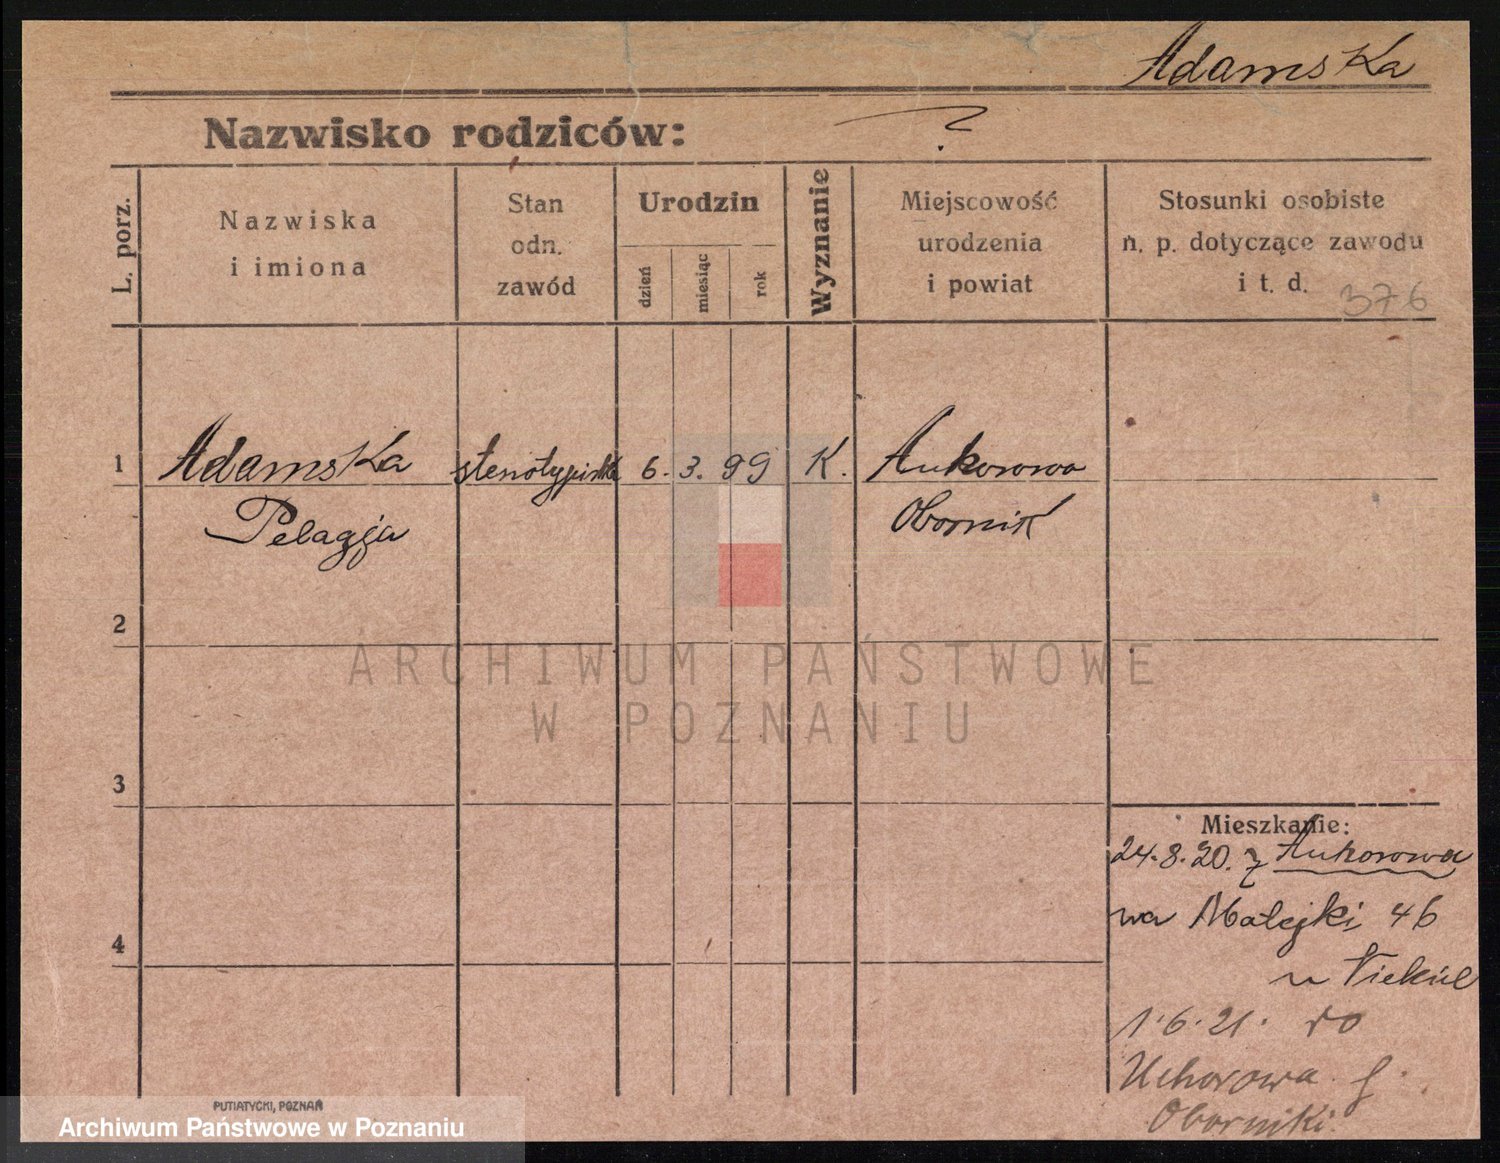 Adamska
Nazwisko rodziców: ?
L. porz.
Nazwiska
i imiona
Stan
odn.
zawód
Urodzin
dzień
miesiąc
rok
Wyznanie
Miejscowość
urodzenia
i powiat
Stosunki osobiste
n. p. dotyczące zawodu
i t. d.
376
1 Adamska stenotypistka 6. 3. 99 K.
Pelagja Obornik
2
ARCHIWUM PAŃSTWOWE
W POZNANIU
3
Mieszkanie:
24.8.20. z
na Matejki 46
4
u
1.6.21. do
Oborniki.
PUTIATYCKI, POZNAŃ
Archiwum Państwowe w Poznaniu